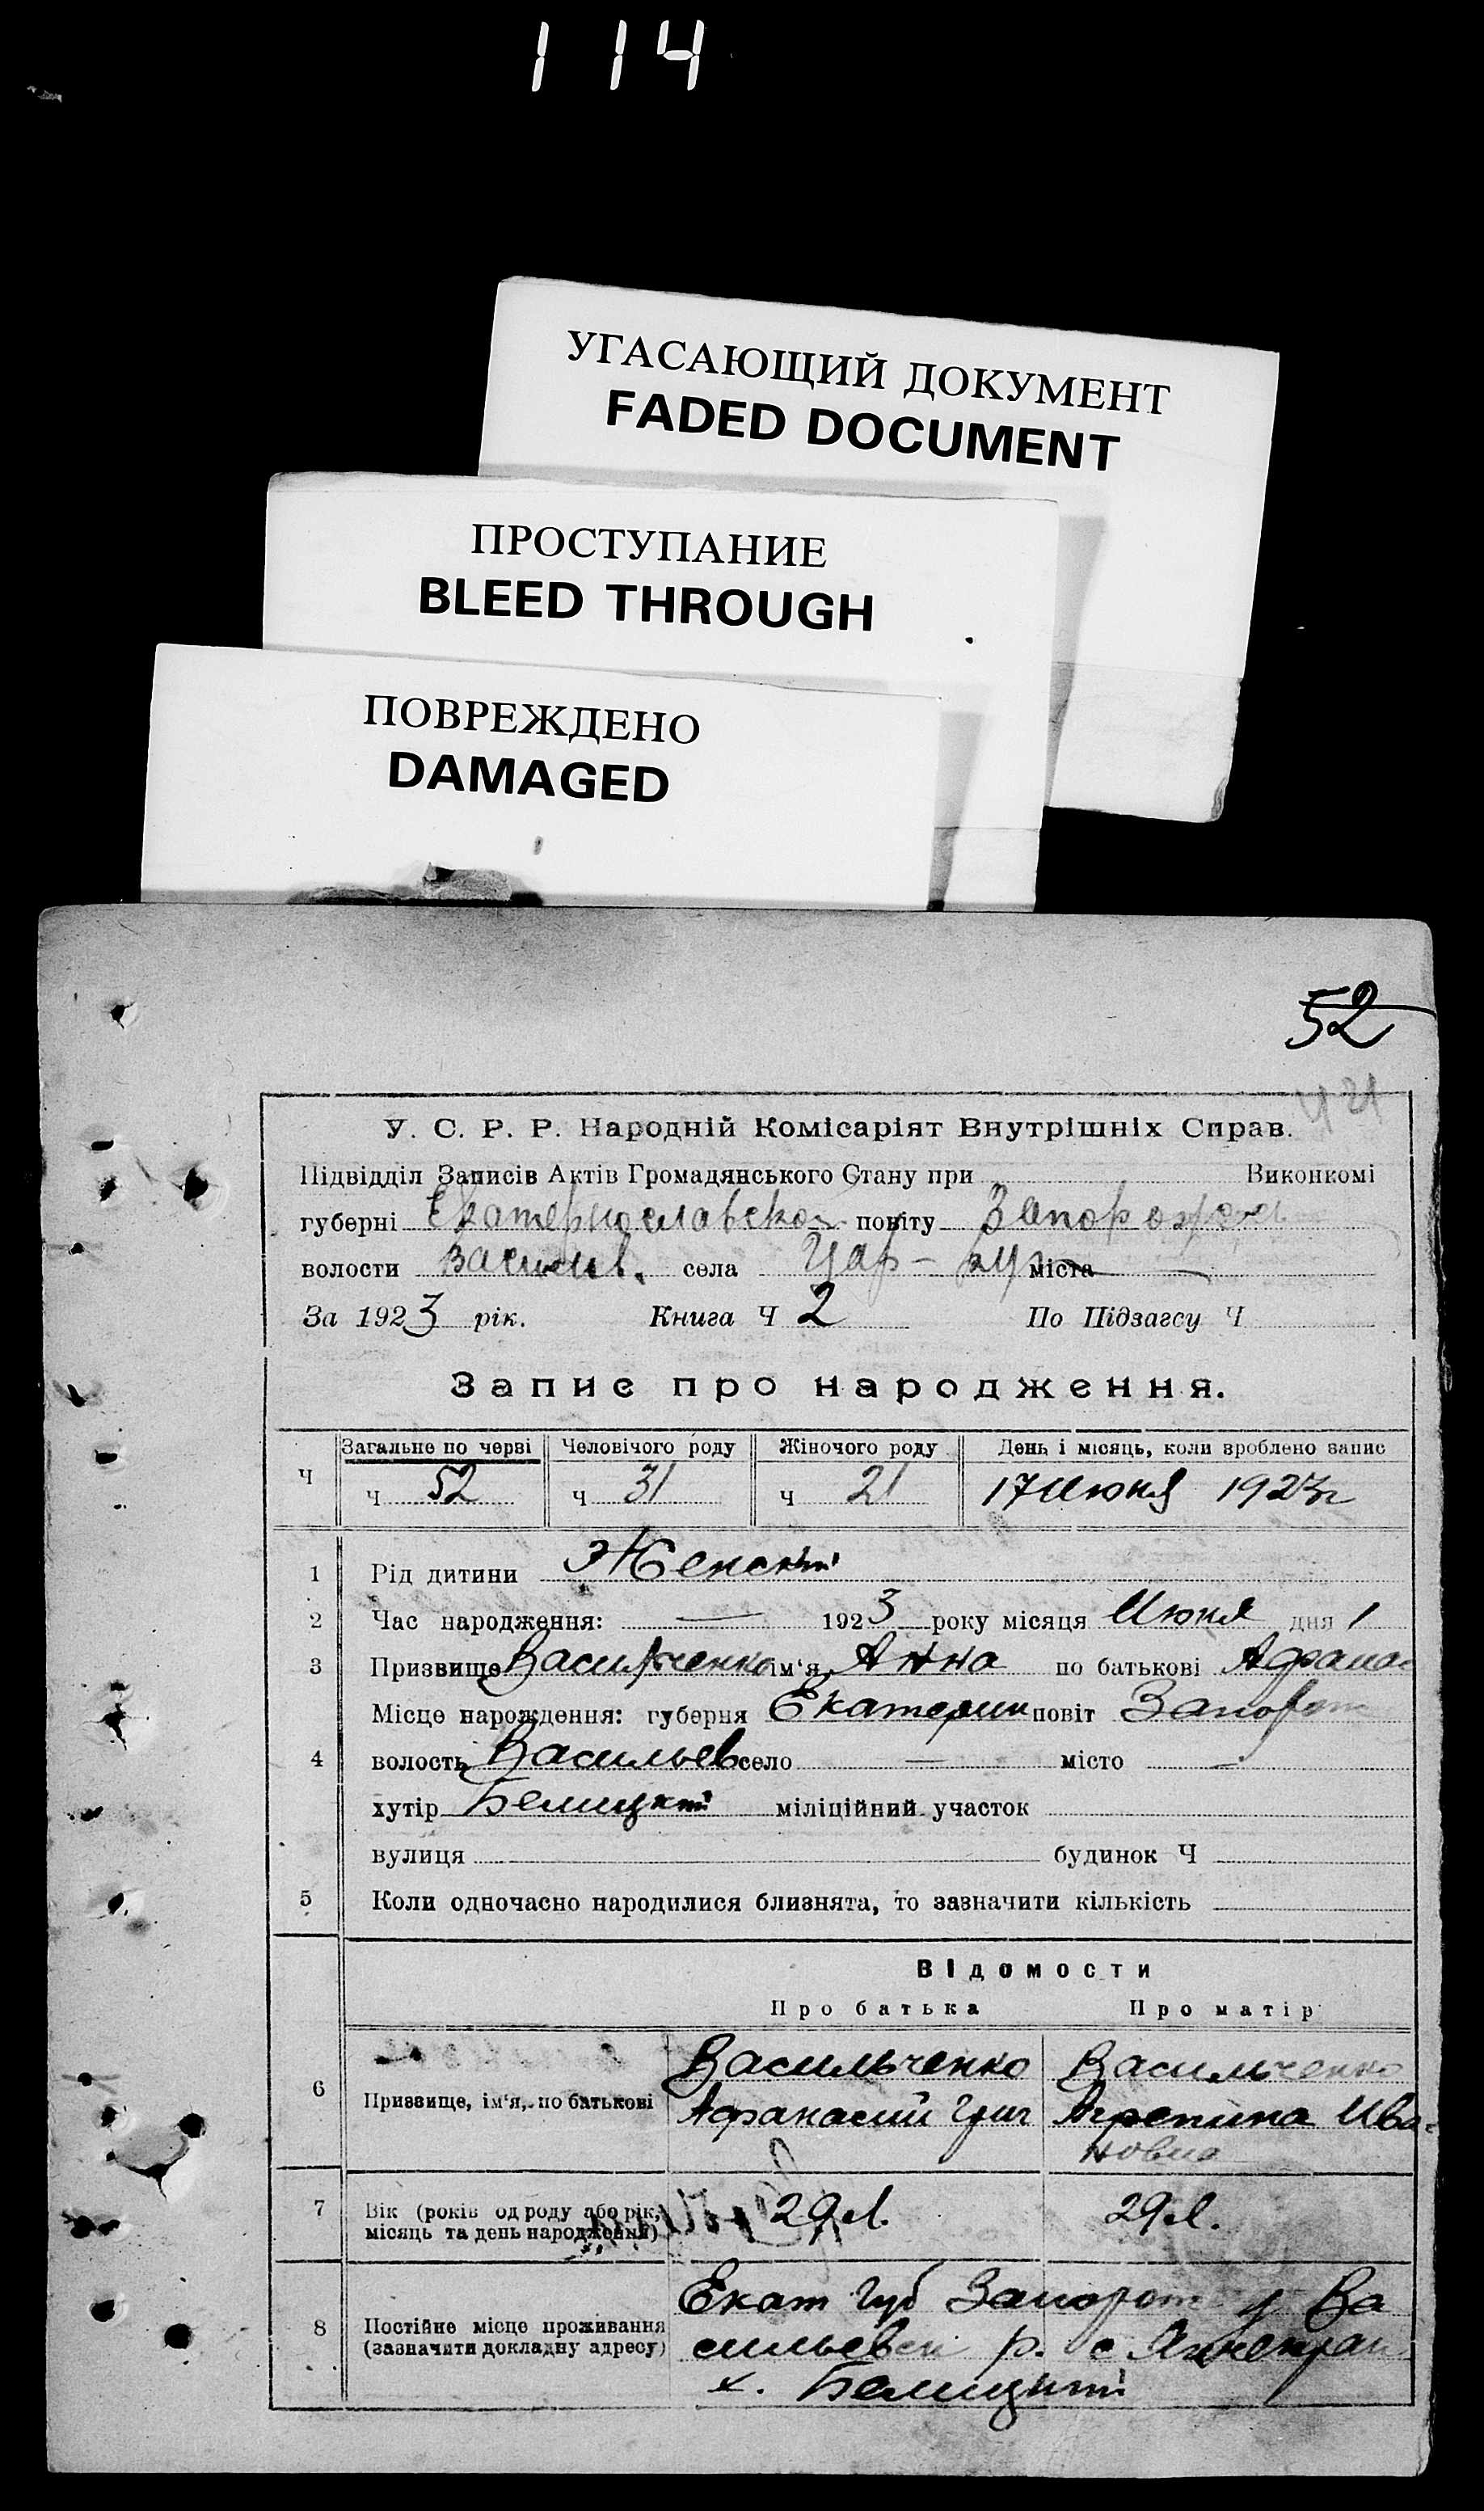 114
УГАСАЮЩИЙ ДОКУМЕНТ
FADED DOCUMENT
ПРОСТУПАНИЕ
BLEED THROUGH
ПОВРЕЖДЕНО
DAMAGED
52
У. С. Р. Р. Народній Комісаріят Внутрішніх Справ.
Підвідділ Записів Актів Громадянського Стану при Виконкомі
губерні Екатеринославской повіту
волости села Цар- міста —
За 1923 рік. Книга Ч 2 По Підзагсу Ч
Запис про народження.
Ч Загальне по черві Человічого роду Жіночого роду День і місяць, коли зроблено запис
Ч 52 Ч 31 Ч 21 17 Июня 1923г
1 Рід дитини Женский
2 Час народження: — 1923 року місяця Июня дня 1
3 Призвище Васильченко ім'я Анна по батькові Афанас
Місце нарождення: губерня Екатерин повіт Запорож
4 волость Васильев село — місто —
хутір Белицкий міліційний участок
вулиця будинок Ч
5 Коли одночасно народилися близнята, то зазначити кількість
Відомости
Про батька Про матір
Васильченко Васильченко
6 Призвище, ім'я, по батькові Афанасий Григ Агрепина Ива-
новна
7 Вік (років од роду або рік, 29 л. 29 л.
місяць та день народження)
Екат губ Запорож у Ва
8 Постійне місце проживання сильевск р. с.
(зазначити докладну адресу)
х. Белицкий